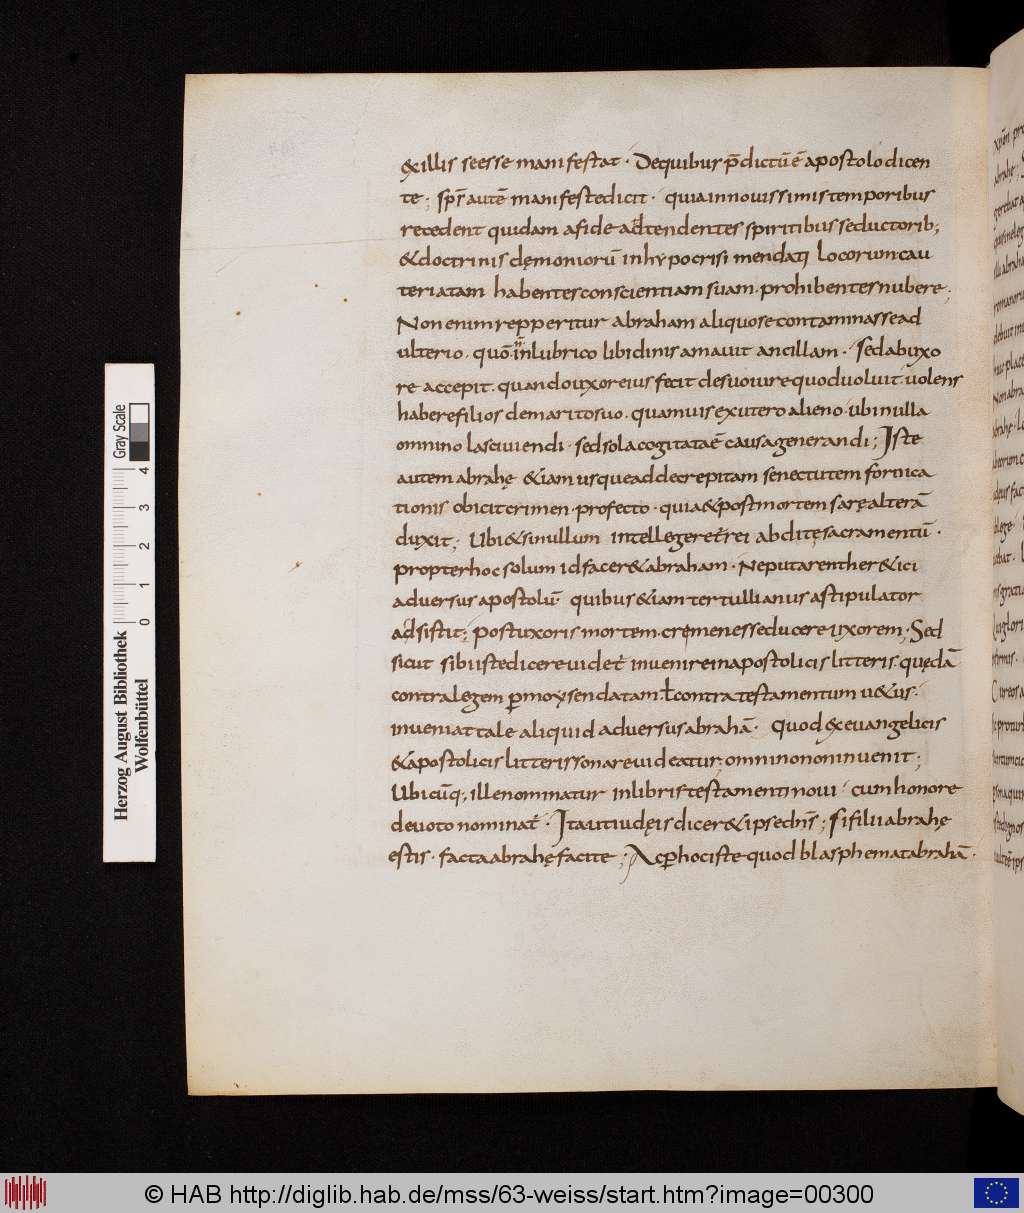 &illis se esse manifestat · De quibus p̄dictū ē apostolo dicen
te ; sp̄s autē manifeste dicit · quia in nouissimis temporibus
recedent quidam a fide adtendentes spiritibus seductorib;
& doctrinis dęmoniorū in hypocrisi mendatilocorum cau
teriatam habentes conscientiam suam · prohibentes nubere ·
Non enim repperitur abraham aliquo se contaminasse ad
ulterio · quō in lubrico libidinis amauit ancillam · sed ab uxo
re accepit · quando uxor eius fecit de suo iure quod uoluit · uolens
habere filios de marito suo · quamuis ex utero alieno · ubi nulla
omnino lasciuiendi · sed sola cogitata ē causa generandi ; Iste
autem abrahę &iam usque ad decrepitam senectutem fornica
tionis obicit crimen · profecto · quia & post mortem sarę alterā
duxit ; Ubi & si nullum intellegeret̄ rei abditę sacramentū ·
propter hoc solum id facer& abraham · Ne putarent her&ici
aduersus apostolū · quibus &iam tertullianus astipulator
adsistit ; post uxoris mortem · crimen esse ducere uxorem ; Sed
sicut sibi iste dicere uidet̄ inuenire in apostolicis litteris · quędā
contra legem p̄ moysen datam · ł contra testamentum u&us ·
inueniat tale aliquid aduersus abrahā · Quod & ex euangelicis
& apostolicis litteris sonare uideatur ; omnino non inuenit ;
Ubicūq; ille nominatur in libris testamenti noui · cum honore
deuoto nominat̄ · Ita ut iudęis dicer& ipse dn̄s ; si filii abrahę
estis · facta abrahę facite ; Ac p̄ hoc iste quod blasphemat abrahā ·
Herzog August Bibliothek
Wolfenbüttel
0 1 2 3 4
Gray Scale
© HAB http://diglib.hab.de/mss/63-weiss/start.htm?image=00300